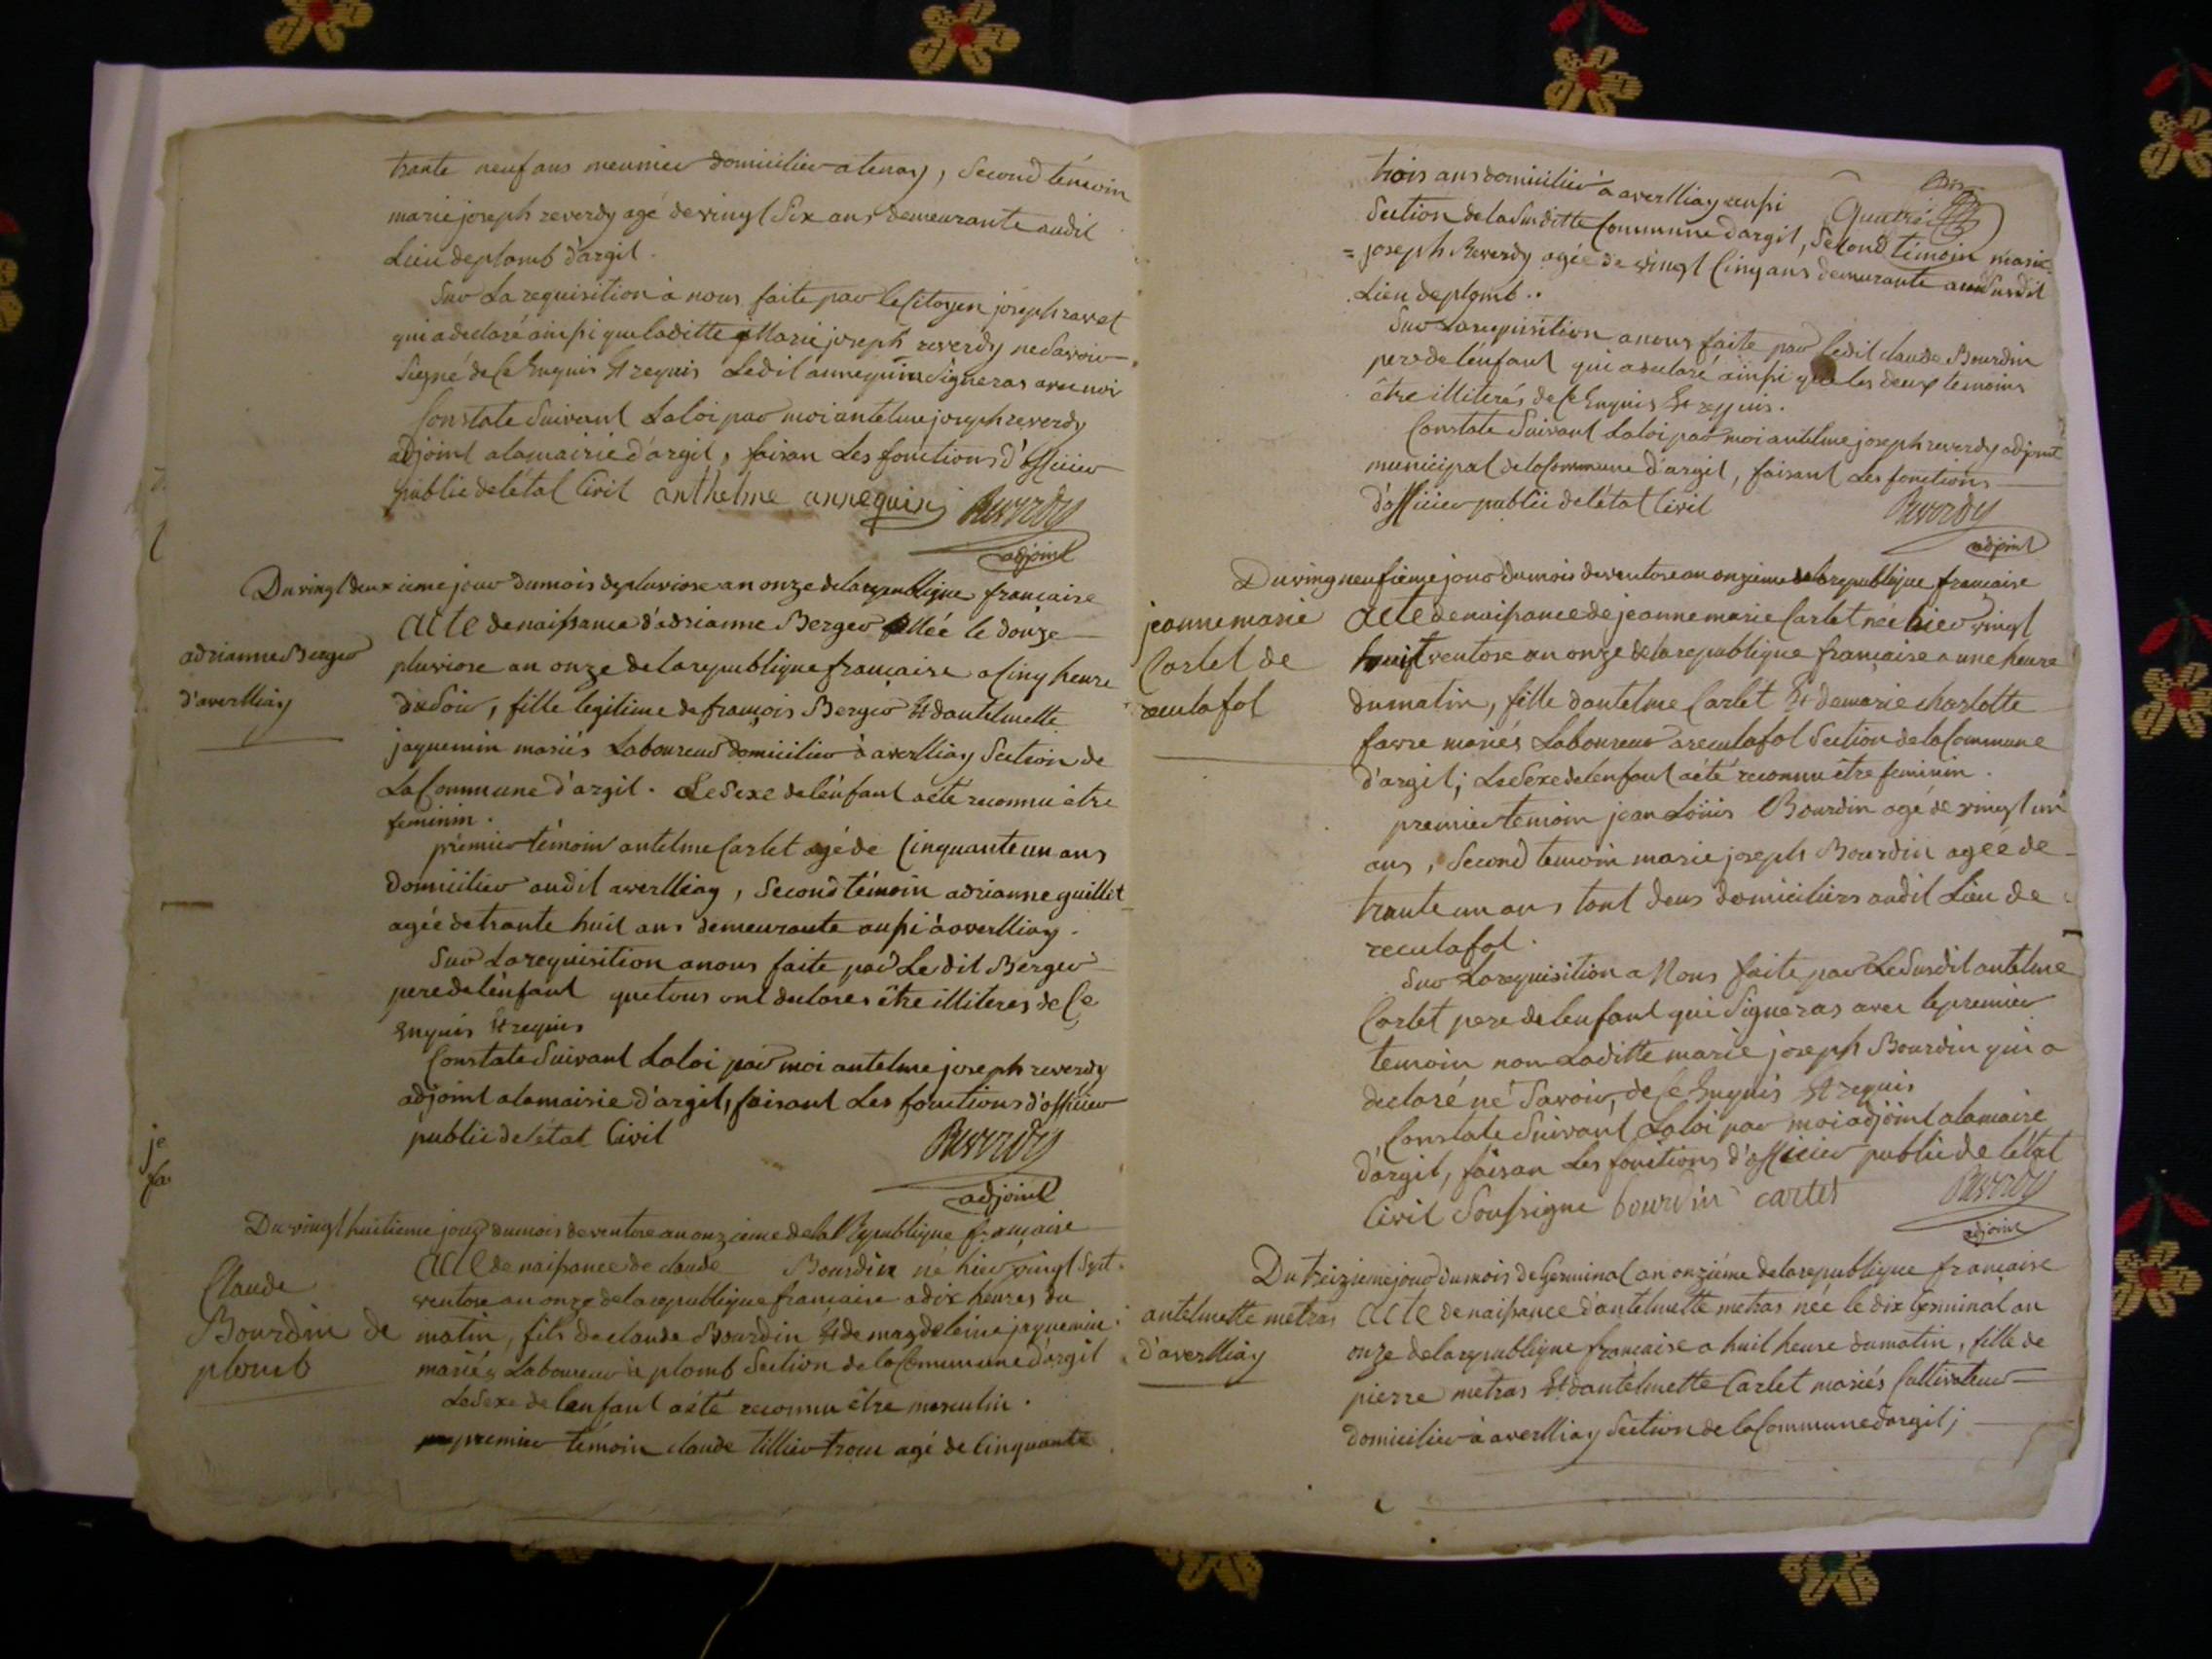 trante neuf ans meunier domicilier a tenay, Second témoin
marie joseph reverdy agé de vingt Six ans demeurante audit
Lieu de plomb d'argil.
Sur La requisition à nous faite par le Citoyen joseph ravet
qui a declaré ainsi que laditte Marie joseph reverdy ne Savoir
Signé de Ce Enquis Et requis Ledit annequin Signeras avec moi
Constate Suivant La loi par moi antelme joseph reverdy
adjoint a la mairie d'argil, faisan Les fonctions d'officier
public de l'état Civil anthelme annequin Reverdy
adjoint
Du vingt deuxieme jour du mois de pluviose an onze de la republique francaise
adrianne Berger
d'averlliay
acte de naissance d'adrianne Berger née le douze
pluviose an onze de la republique française a Cinq heure
du Soir, fille legitime de françois Berger Et d'antelmette
jaquemin mariés Laboureur domicilier à averlliay Section de
La Commune d'argil. Le Sexe de l'énfant a été reconnu être
feminin.
prémier témoin antelme Carlet agé de Cinquante un ans
domicilier audit averlliay, Second témoin adrianne guillet
agée de trante huit ans demeurante aussi à averlliay.
Sur La requisition a nous faite par Le dit Berger
pere de l'énfant que tous ont declares être illiteres de Ce
Enquis Et requis
Constate Suivant La loi par moi antelme joseph reverdy
adjoint a la mairie d'argil, faisant Les fonctions d'officier
public de l'état Civil Reverdy
adjoint
Du vingt huitieme jour du mois de ventose an onzieme de la Republique française
Claude
Bourdin de
plomb
acte de naissance de claude Bourdin né hier vingt Sept
ventose an onze de la republique francaise a dix heures du
matin, fils de claude Bourdin Et de magdeleine jaquemin
mariés Laboureur a plomb Section de la Commune d'argil
Le Sexe de lenfant a été reconnu être masculin.
premier témoin claude tillier trocu agé de Cinquante
trois ans domicilier à averlliay aussi
Section de la Susditte Commune d'argil, Second témoin marie
= joseph Reverdy agée de vingt Cinq ans demurante au Susdit
Lieu de plomb..
Sur La requisition a nous faite par ledit claude Bourdin
pere de l'énfant qui a declaré ainsi que les deux temoins
être illiterés de Ce Enquis Et requis.
Constate Suivant La loi par moi antelme joseph reverdy adjoint
municipal de la Commune d'argil, faisant Les fonctions
d'officier public de l'état Civil Reverdy
adjoint
Du ving neufieme jour du mois de ventose an onzieme de la republique francaise
jeanne marie
Carlet de
reculafol
acte de naissance de jeanne marie Carlet née hier vingt
huit ventose an onze de la republique française a une heure
du matin, fille dantelme Carlet Et de marie charlotte
favre mariés Laboureur a reculafol Section de la Commune
d'argil; Le Sexe de lenfant a été reconnu être feminin.
premier temoin jean Loüis Bourdin agé de vingt un
ans, Second temoin marie joseph Bourdin agée de
trante un ans tout deus domiciliers audit Lieu de
reculafol.
Sur La requisition a Nous faite par Le Susdit antelme
Carlet pere de lenfant qui Signeras avec le premier
temoin non Laditte marie joseph Bourdin qui a
declaré né Savoir, de Ce Enquis Et requis
Constate Suivant La loi par moi adjoint a la maire
d'argil, faisan Les fonctions d'officier public de l'état
Civil Soussigne bourdin cartet Reverdy
adjoint
Du treizieme jour du mois de Germinal an onziéme de la republique francaise
antelmette metras
d'averlliay
acte de naissance d'antelmette metras née le dix Germinal an
onze de la republique francaise a huit heure du matin, fille de
pierre metras Et dantelmette Carlet mariés Cultivateur
domicilier à averlliay Section de la Commune dargil;